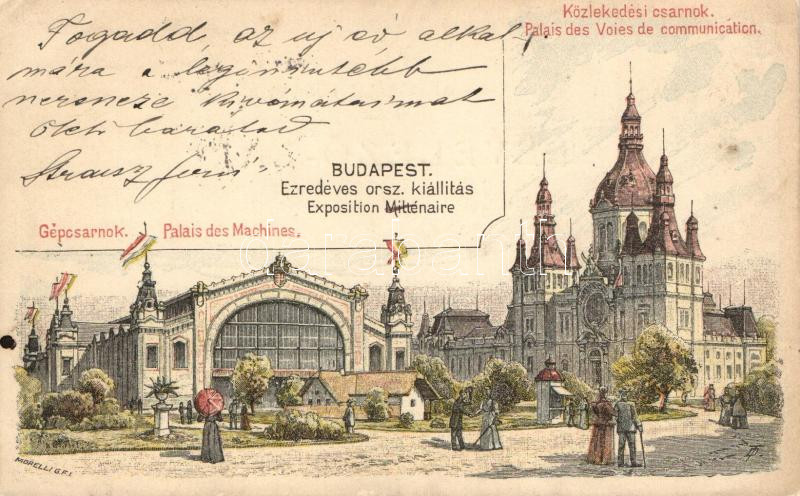 Közlekedési csarnok.
Palais des Voies de communication.
Fogadd az uj év alkal
mára a legőszintébb
kivánataimat
ölel barátod
BUDAPEST.
Ezredéves orsz. kiállitás
Exposition Millénaire
Gépcsarnok. Palais des Machines.
MORELLI G.F.